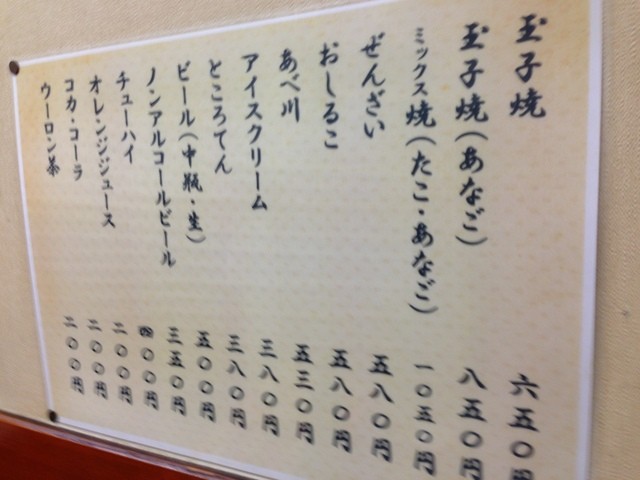 玉子焼 六五〇円
玉子焼(あなご) 八五〇円
ミックス焼(たこ・あなご) 一〇五〇円
ぜんざい 五八〇円
おしるこ 五八〇円
あべ川 五三〇円
アイスクリーム 三八〇円
ところてん 三八〇円
ビール(中瓶・生) 五〇〇円
ノンアルコールビール 三五〇円
チューハイ 四〇〇円
オレンジジュース 二〇〇円
コカ・コーラ 二〇〇円
ウーロン茶 二〇〇円